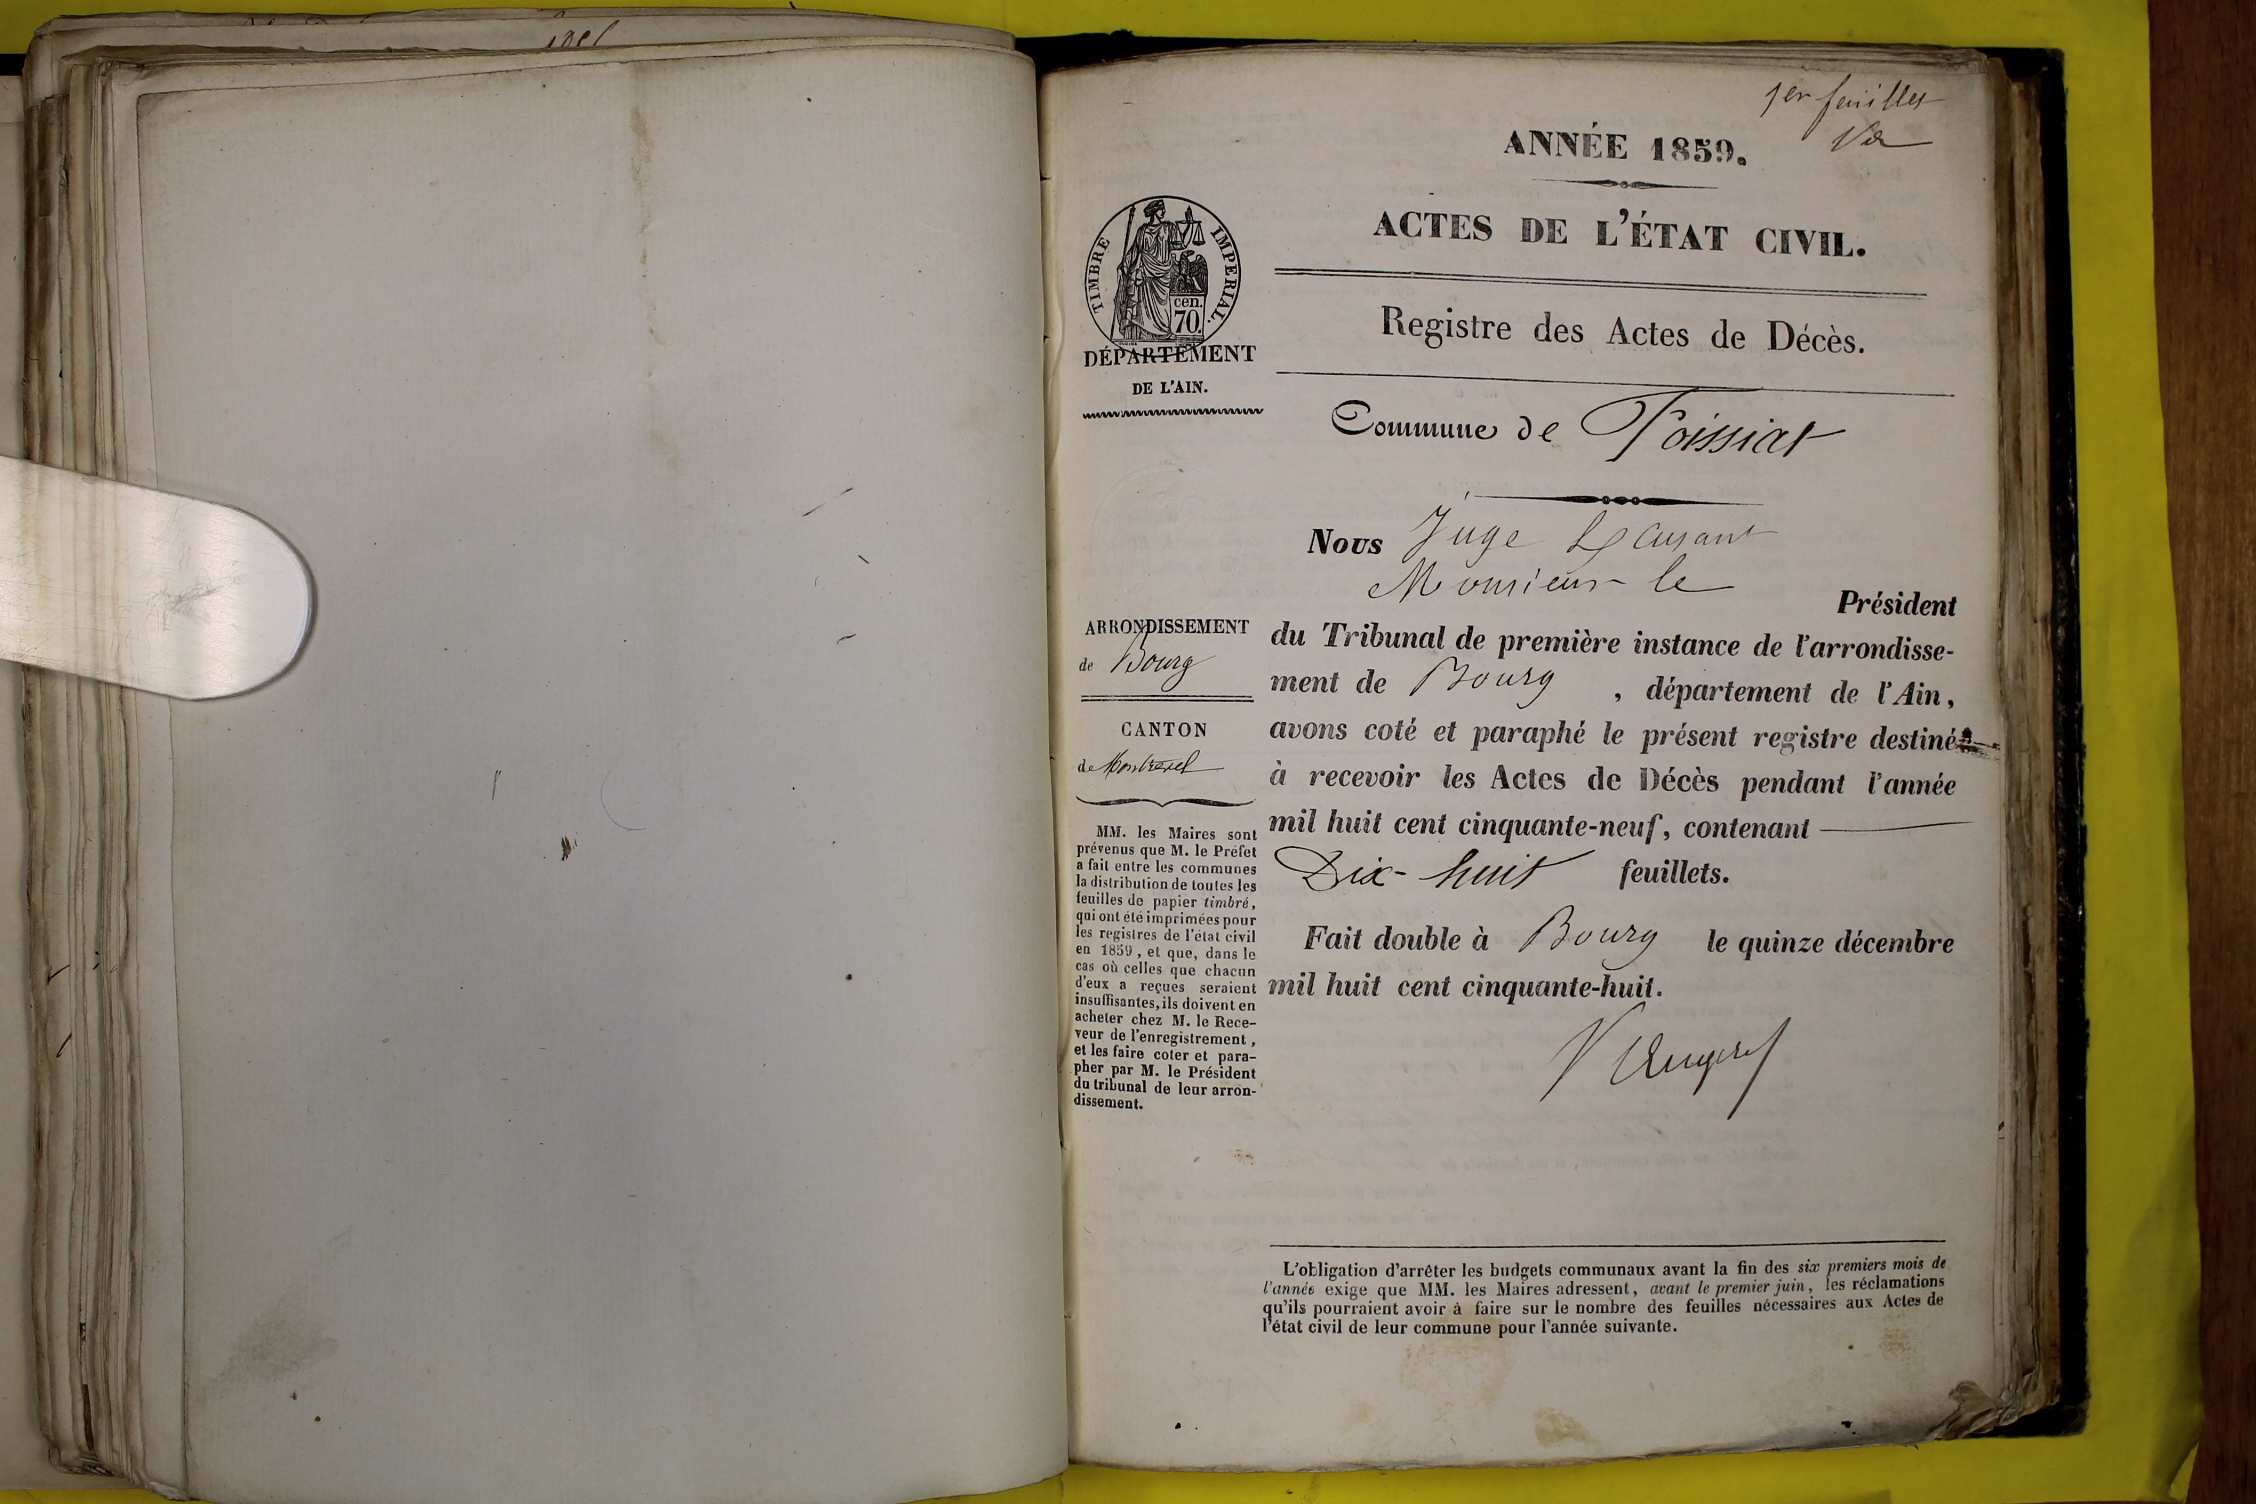 1er feuillet
ANNÉE 1859.
ACTES DE L'ÉTAT CIVIL.
TIMBRE IMPERIAL.
cen.
70.
DÉPARTEMENT
DE L'AIN.
Registre des Actes de Décès.
Commune de Foissiat
Nous Juge
Monsieur le
Président
du Tribunal de première instance de l'arrondisse-
ment de Bourg, département de l'Ain,
avons coté et paraphé le présent registre destiné
à recevoir les Actes de Décès pendant l'année
mil huit cent cinquante-neuf, contenant
Dix-huit feuillets.
Fait double à Bourg le quinze décembre
mil huit cent cinquante-huit.
ARRONDISSEMENT
de Bourg
CANTON
de Montrevel
MM. les Maires sont
prévenus que M. le Préfet
a fait entre les communes
la distribution de toutes les
feuilles de papier timbré,
qui ont été imprimées pour
les registres de l'état civil
en 1859, et que, dans le
cas où celles que chacun
d'eux a reçues seraient
insuffisantes, ils doivent en
acheter chez M. le Rece-
veur de l'enregistrement,
et les faire coter et para-
pher par M. le Président
du tribunal de leur arron-
dissement.
L'obligation d'arrêter les budgets communaux avant la fin des six premiers mois de
l'année exige que MM. les Maires adressent, avant le premier juin, les réclamations
qu'ils pourraient avoir à faire sur le nombre des feuilles nécessaires aux Actes de
l'état civil de leur commune pour l'année suivante.